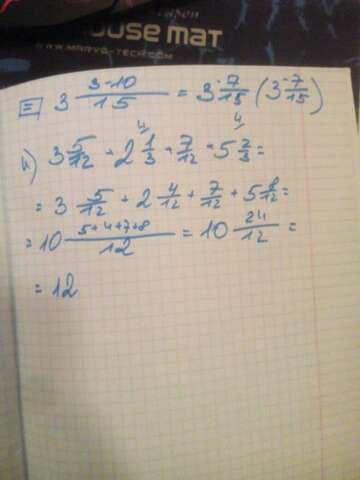 MOUSE MAT
WWW.MARVO-TECH.COM
= 3 3-10/15 = 3 -7/15 (3 -7/15)
и) 3 5/12 + 2 1/3 + 7/12 + 5 2/3 =
= 3 5/12 + 2 4/12 + 7/12 + 5 8/12 =
= 10 5+4+7+8/12 = 10 24/12 =
= 12